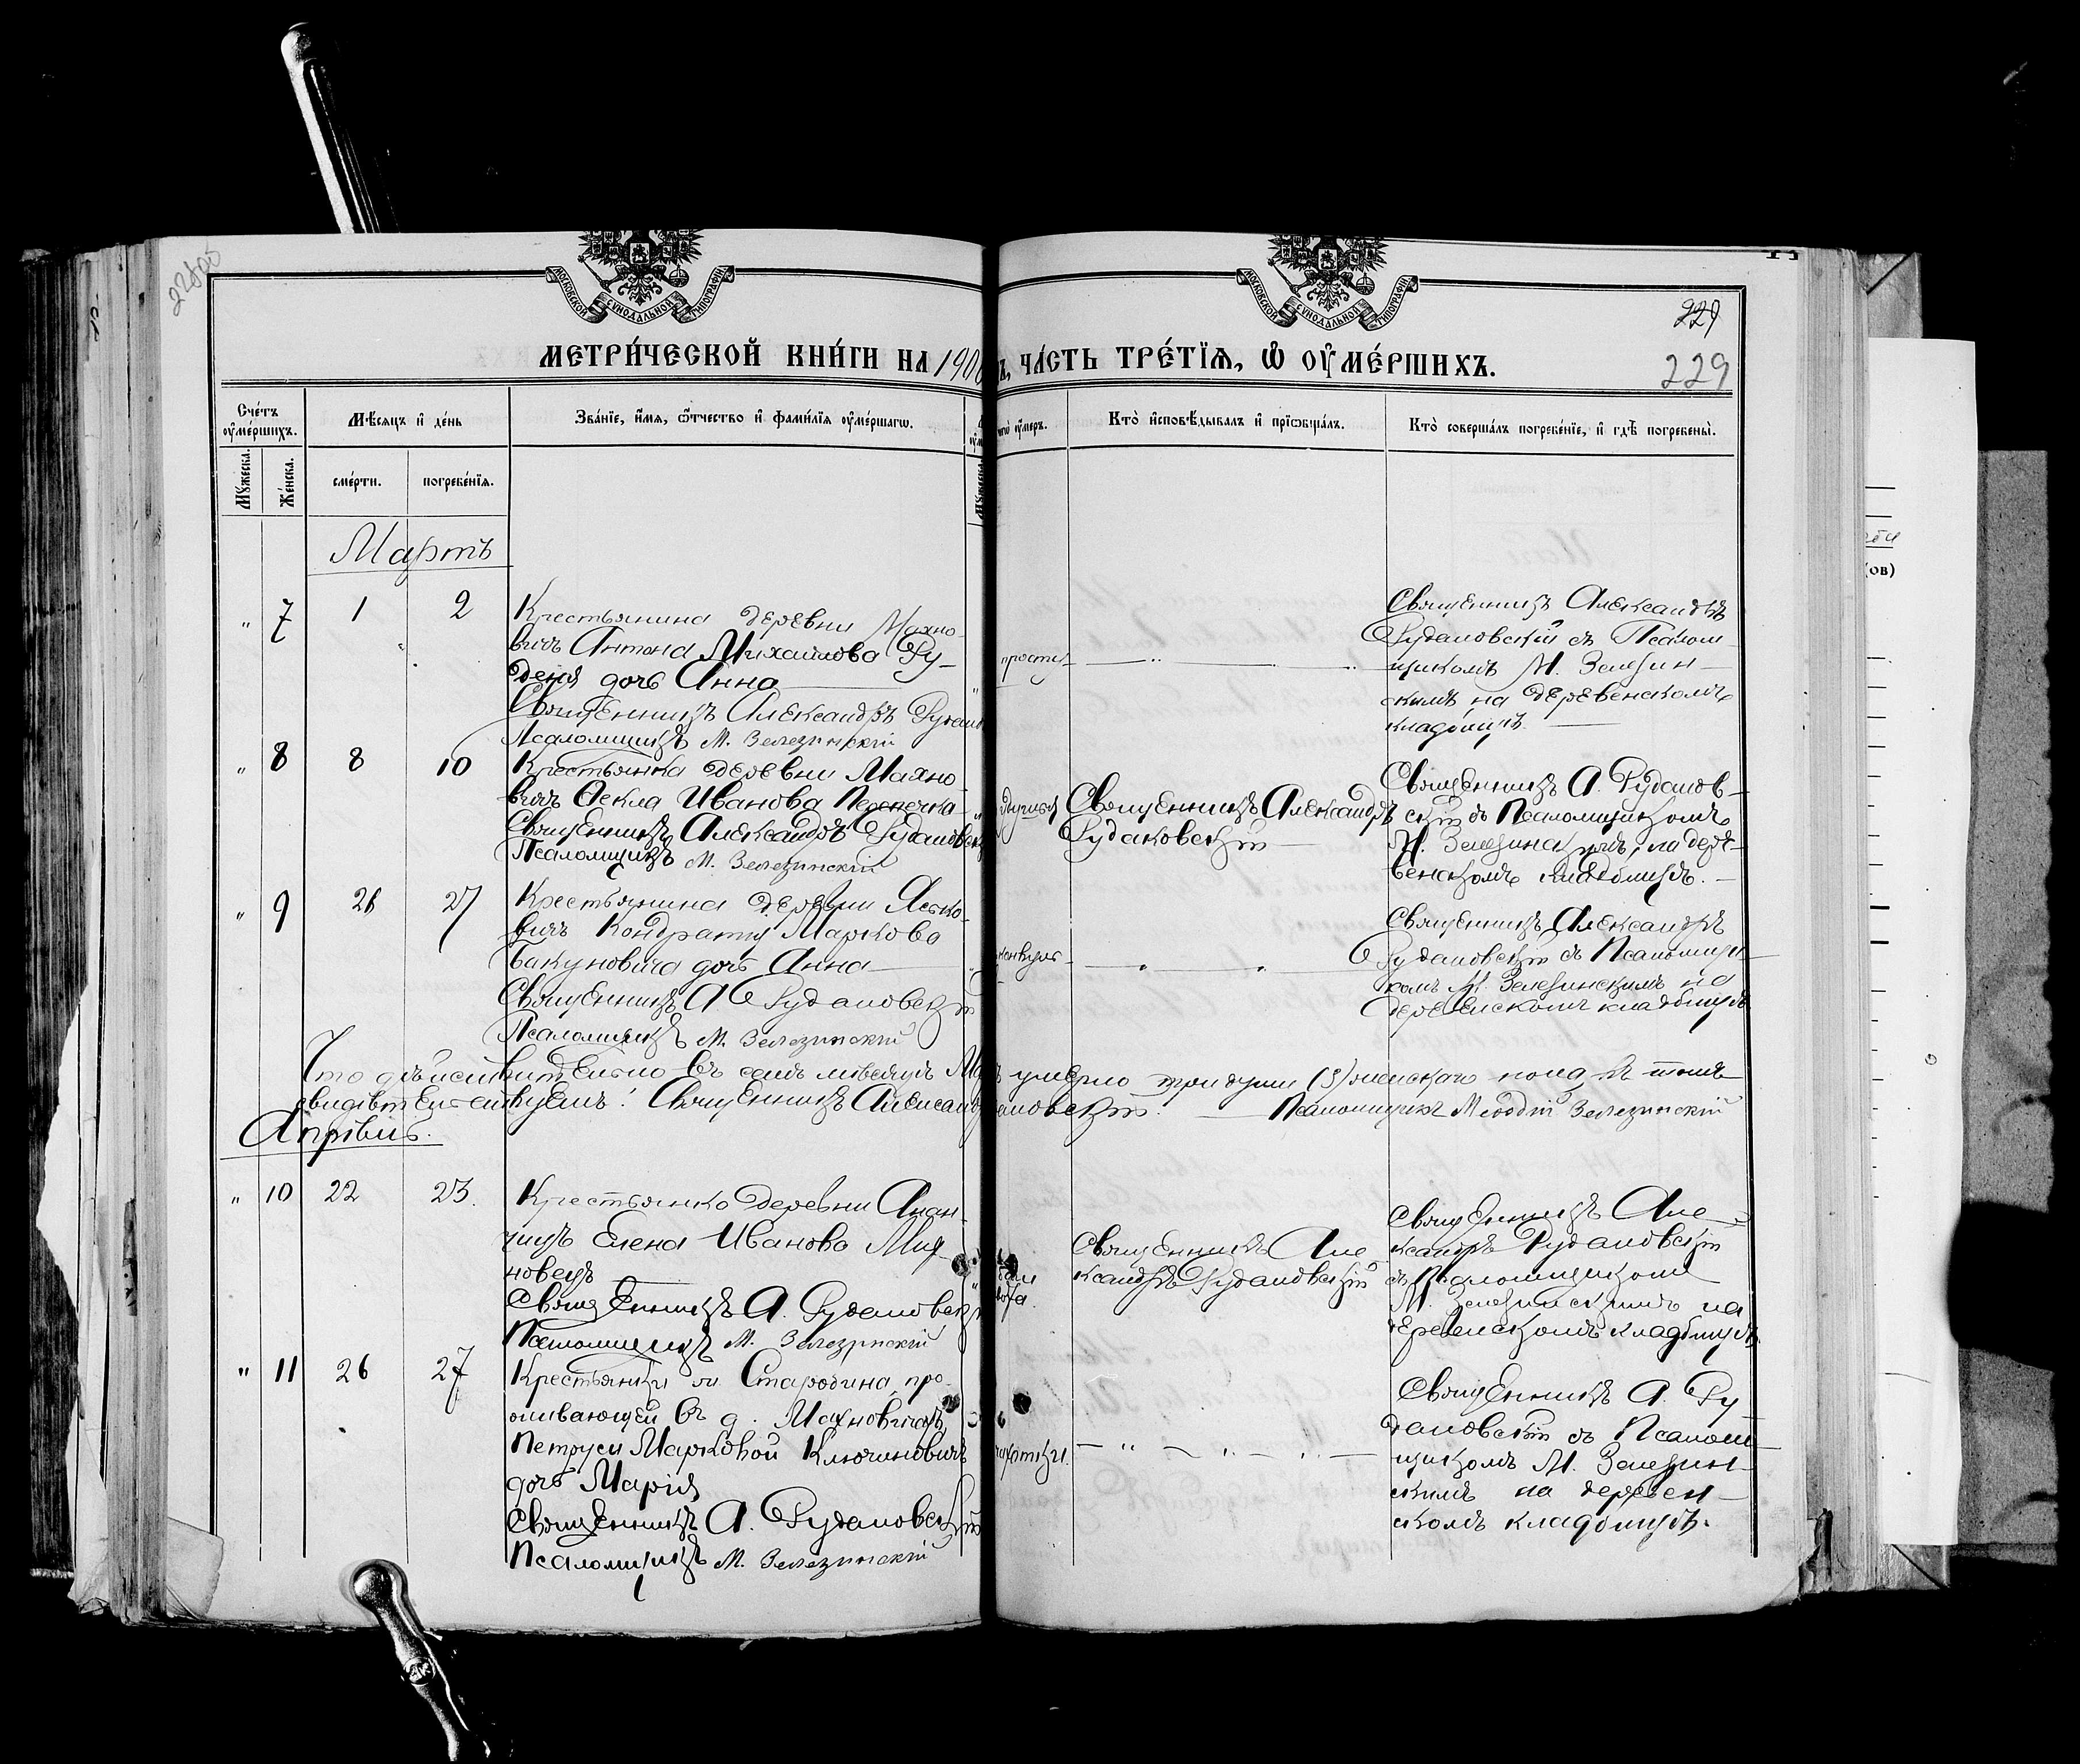 229
229
МЕТРИ́ЧЕСКОЙ КНИ́ГИ НА 190
Ъ, ЧА́СТЬ ТРЕ́ТЇѦ, Ѡ ОУ҆МЕ́РШИХЪ.
МОСКОВСКОЙ СѴНОДАЛЬНОЙ ТИПОГРАФІИ
МОСКОВСКОЙ СѴНОДАЛЬНОЙ ТИПОГРАФІИ
Сче́тъ оу҆ме́ршихъ.
Мѣ́сяцъ и҆ де́нь
Зва́нїе, и҆́мя, ѻ҆́тчество и҆ фами́лїя оу҆ме́ршагѡ.
Кто̀ и҆сповѣ́дывалъ и҆ прїѡбща́лъ.
Кто̀ соверша́лъ погребе́нїе, и҆ гдѣ̀ погребены̀.
Мꙋ́жеска.
Же́нска.
сме́рти.
погребе́нїя.
Мартъ
" 7 1 2
Крестьянина деревни Махно-
вичъ Антона Михайлова Ру-
деня дочь Анна
Священникъ Александръ Рудаков
Псаломщикъ М. Зелезинскій
простуд
Священникъ Александръ
Рудаковскій съ Псалом-
щикомъ М. Зелезин-
скимъ на деревенскомъ
кладбищѣ.
" 8 8 10
Крестьянка деревни Махно-
вичъ Ѳекла Иванова Перепечка
Священникъ Александръ Рудаковск
Псаломщикъ М. Зелезинскій
Священникъ Александръ
Рудаковскій
Священникъ А. Рудаков-
скій съ Псаломщикомъ
М. Зелезинскимъ, на дере-
венскомъ кладбищѣ.
" 9 26 27
Крестьянина деревни Ясько-
вичъ Кондратія Маркова
Бакуновича дочь Анна
Священникъ А. Рудаковскій
Псаломщикъ М. Зелезинскій
Священникъ Александръ
Рудаковскій съ Псаломщи-
комъ М. Зелезинскимъ на
деревенскомъ кладбищѣ
Что дѣйствительно въ семъ мѣсяцѣ Ма умерло три души (3) женскаго пола въ томъ
свидѣтельствуемъ: Священникъ Александ аковскій. Псаломщикъ Меѳодій Зелезинскій
Апрѣль.
" 10 22 23.
Крестьянка деревни Анан-
чицъ Елена Иванова
новецъ
Священникъ А. Рудаковск
Псаломщикъ М. Зелезинскій
Священникъ Але-
ксандръ Рудаковскій
Священникъ Але-
ксандръ Рудаковскій
съ Псаломщикомъ
М. Зелезинскимъ на
деревенскомъ кладбищѣ.
" 11 26 27
Крестьянки м. Старобина, про-
живающей въ д. Махновичахъ,
Петруси Марковой Ключиновичъ
дочь Марія
Священникъ А. Рудаковскій
Псаломщикъ М. Зелезинскій
Священникъ А. Ру-
даковскій съ Псалом-
щикомъ М. Зелезин-
скимъ на деревен-
скомъ кладбищѣ.
(ов)